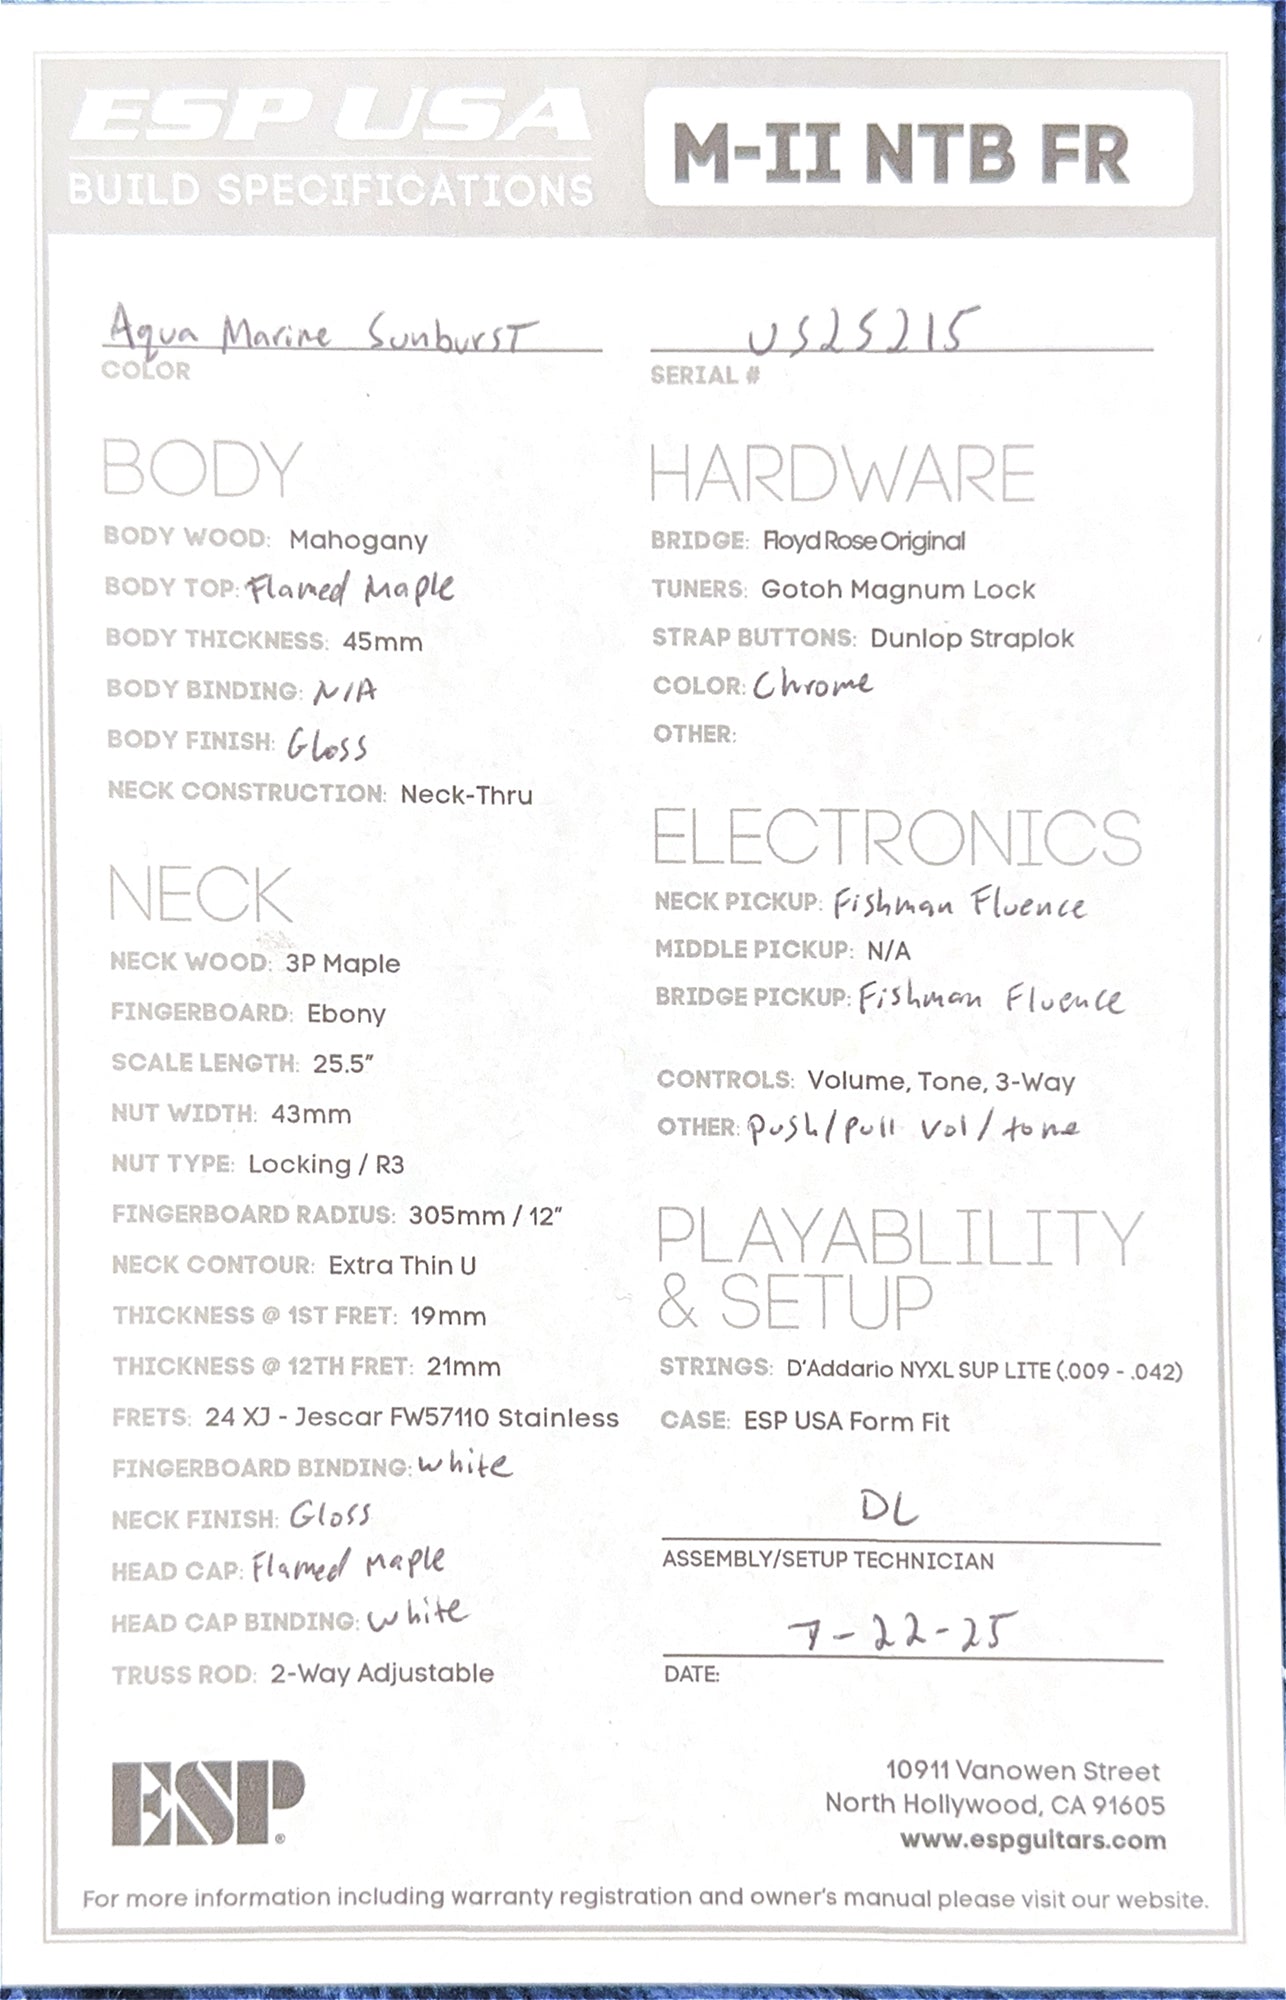 ESP USA
BUILD SPECIFICATIONS
M-II NTB FR
Aqua Marine Sunburst
COLOR
US25215
SERIAL #
BODY
BODY WOOD: Mahogany
BODY TOP: Flamed Maple
BODY THICKNESS: 45mm
BODY BINDING: N/A
BODY FINISH: Gloss
NECK CONSTRUCTION: Neck-Thru
NECK
NECK WOOD: 3P Maple
FINGERBOARD: Ebony
SCALE LENGTH: 25.5"
NUT WIDTH: 43mm
NUT TYPE: Locking / R3
FINGERBOARD RADIUS: 305mm / 12"
NECK CONTOUR: Extra Thin U
THICKNESS @ 1ST FRET: 19mm
THICKNESS @ 12TH FRET: 21mm
FRETS: 24 XJ - Jescar FW57110 Stainless
FINGERBOARD BINDING: White
NECK FINISH: Gloss
HEAD CAP: Flamed Maple
HEAD CAP BINDING: White
TRUSS ROD: 2-Way Adjustable
HARDWARE
BRIDGE: Floyd Rose Original
TUNERS: Gotoh Magnum Lock
STRAP BUTTONS: Dunlop Straplok
COLOR: Chrome
OTHER:
ELECTRONICS
NECK PICKUP: Fishman Fluence
MIDDLE PICKUP: N/A
BRIDGE PICKUP: Fishman Fluence
CONTROLS: Volume, Tone, 3-Way
OTHER: Push/Pull Vol/tone
PLAYABLILITY
& SETUP
STRINGS: D'Addario NYXL SUP LITE (.009 - .042)
CASE: ESP USA Form Fit
DL
ASSEMBLY/SETUP TECHNICIAN
7-22-25
DATE:
ESP®
10911 Vanowen Street
North Hollywood, CA 91605
www.espguitars.com
For more information including warranty registration and owner's manual please visit our website.